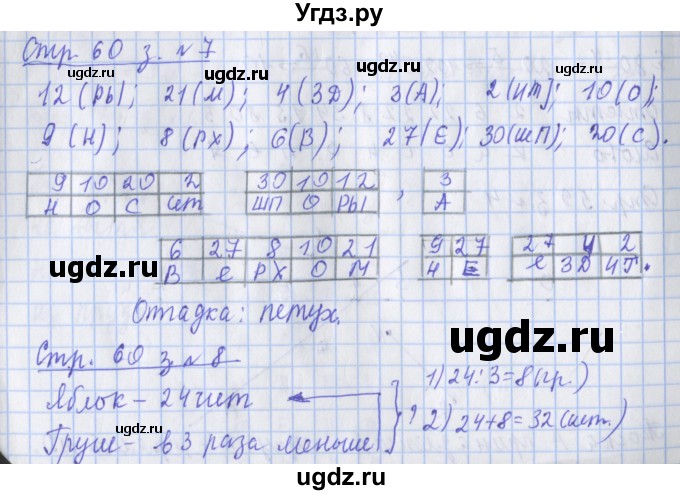 Угdз.ру
Стр. 60 з. №7
ugdz.ru ugdz.ru ugdz.ru
12 (РЫ); 21(М); 4(ЗД); 3(А); 2(ИТ); 10(О);
9(Н); 8(РХ); 6(В); 27(Е); 30(ШП); 20(С).
ugdz.ru ugdz.ru
9 10 20 2 30 10 12 3
Н О С ИТ ШП О РЫ , А
ugdz.ru
6 27 8 10 21 9 27 27 4 2
В Е РХ О М Н Е Е ЗД ИТ.
ugdz.ru
Отгадка: петух.
ugdz.ru
Стр. 60 з №8
ugdz.ru
Яблок – 24 шт 1) 24:3=8(гр.)
? 2) 24+8=32(шт.)
Груш – в 3 раза меньше
ugdz.ru ugdz.ru
ugdz.ru